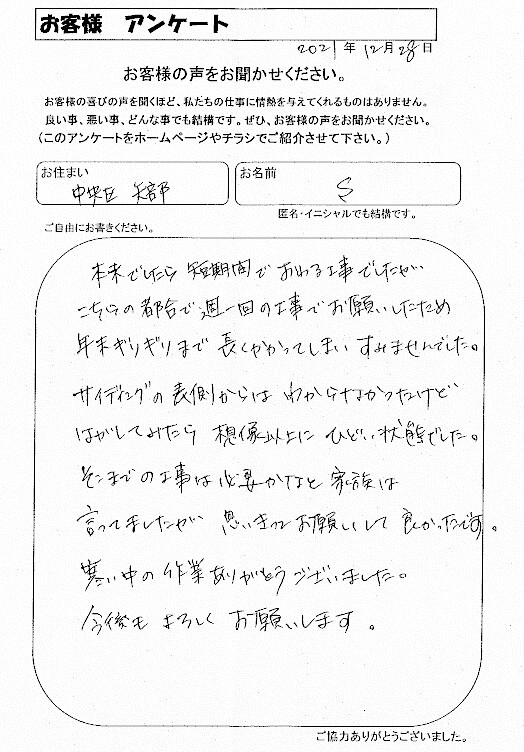 お客様 アンケート
2021年12月28日
お客様の声をお聞かせください。
お客様の喜びの声を聞くほど、私たちの仕事に情熱を与えてくれるものはありません。
良い事、悪い事、どんな事でも結構です。ぜひ、お客様の声をお聞かせください。
(このアンケートをホームページやチラシでご紹介させて下さい。)
お住まい
中央区 矢部
お名前
S
匿名・イニシャルでも結構です。
ご自由にお書きください。
本来でしたら 短期間で おわる工事でしたが
こちらの都合で週一回の工事でお願いしたため
年末ギリギリまで 長くかかってしまい すみませんでした。
サイディングの表側からは わからなかったけど
はがしてみたら 想像以上に ひどい状態でした。
そこまでの工事は必要かなと 家族は
言ってましたが 思いきってお願いして 良かったです。
寒い中の作業ありがとうございました。
今後も よろしく お願いします。
ご協力ありがとうございました。